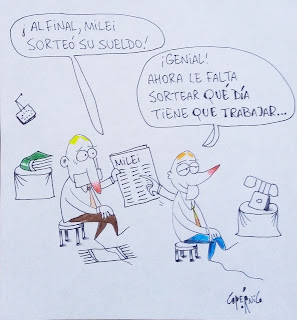 ¡AL FINAL, MILEI
SORTEÓ SU SUELDO!
¡GENIAL!
AHORA LE FALTA
SORTEAR QUÉ DÍA
TIENE QUE TRABAJAR...
MILEI
COPÉRNICO